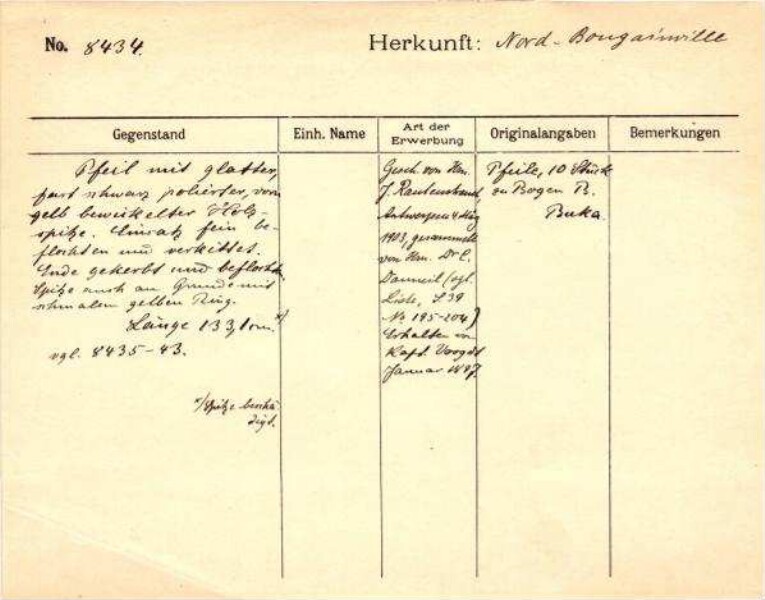 No. 8434.
Herkunft: Nord-Bougainville
Gegenstand
Einh. Name
Art der Erwerbung
Originalangaben
Bemerkungen
Pfeil mit glatter,
fast schwarz polierter, vorn
gelb bewickelter Holz-
spitze. Einsatz fein be-
flochten und verkittet.
Ende gekerbt und beflochten.
Spitze auch am Grunde mit
schmalem gelben Ring.
Länge 133,1 cm. *)
vgl. 8435-43.
*) Spitze beschä-
digt.
Gesch. von Hrn.
J. Rautenstrauch,
Antwerpen 4 Mag
1903, gesammelt
von Hrn. Dr C.
Danneil (vgl.
Liste, S 39
No 195-204)
Erhalten von
Kapt. Voogdt
Januar 1897.
Pfeile, 10 Stück
zu Bogen B.
Buka.